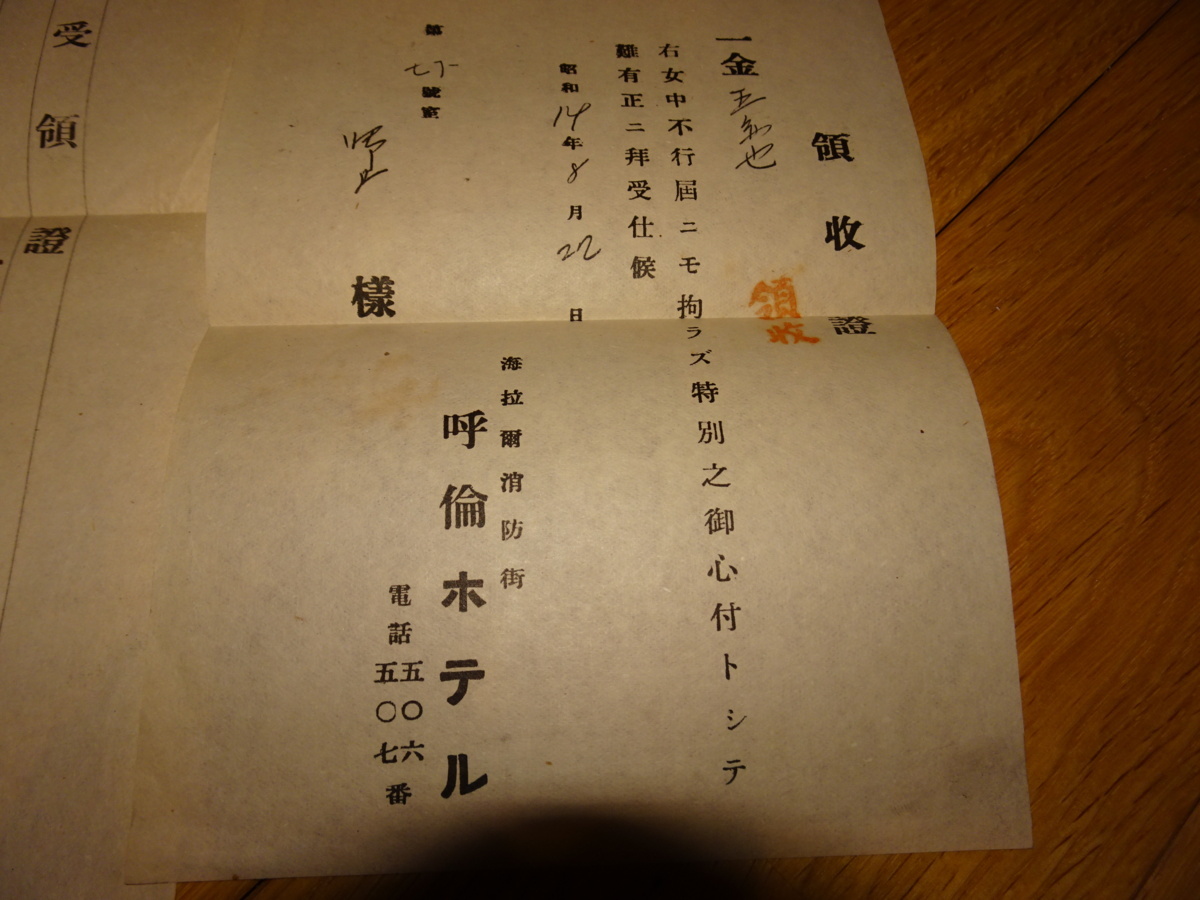 領收證
領收
一金五
也
右女中不行屆ニモ拘ラズ特別之御心付トシテ
難有正ニ拜受仕候
昭和14年8月22日
第
號室
樣
海拉爾消防街
呼倫ホテル
電話五〇六
五〇七番
受領證